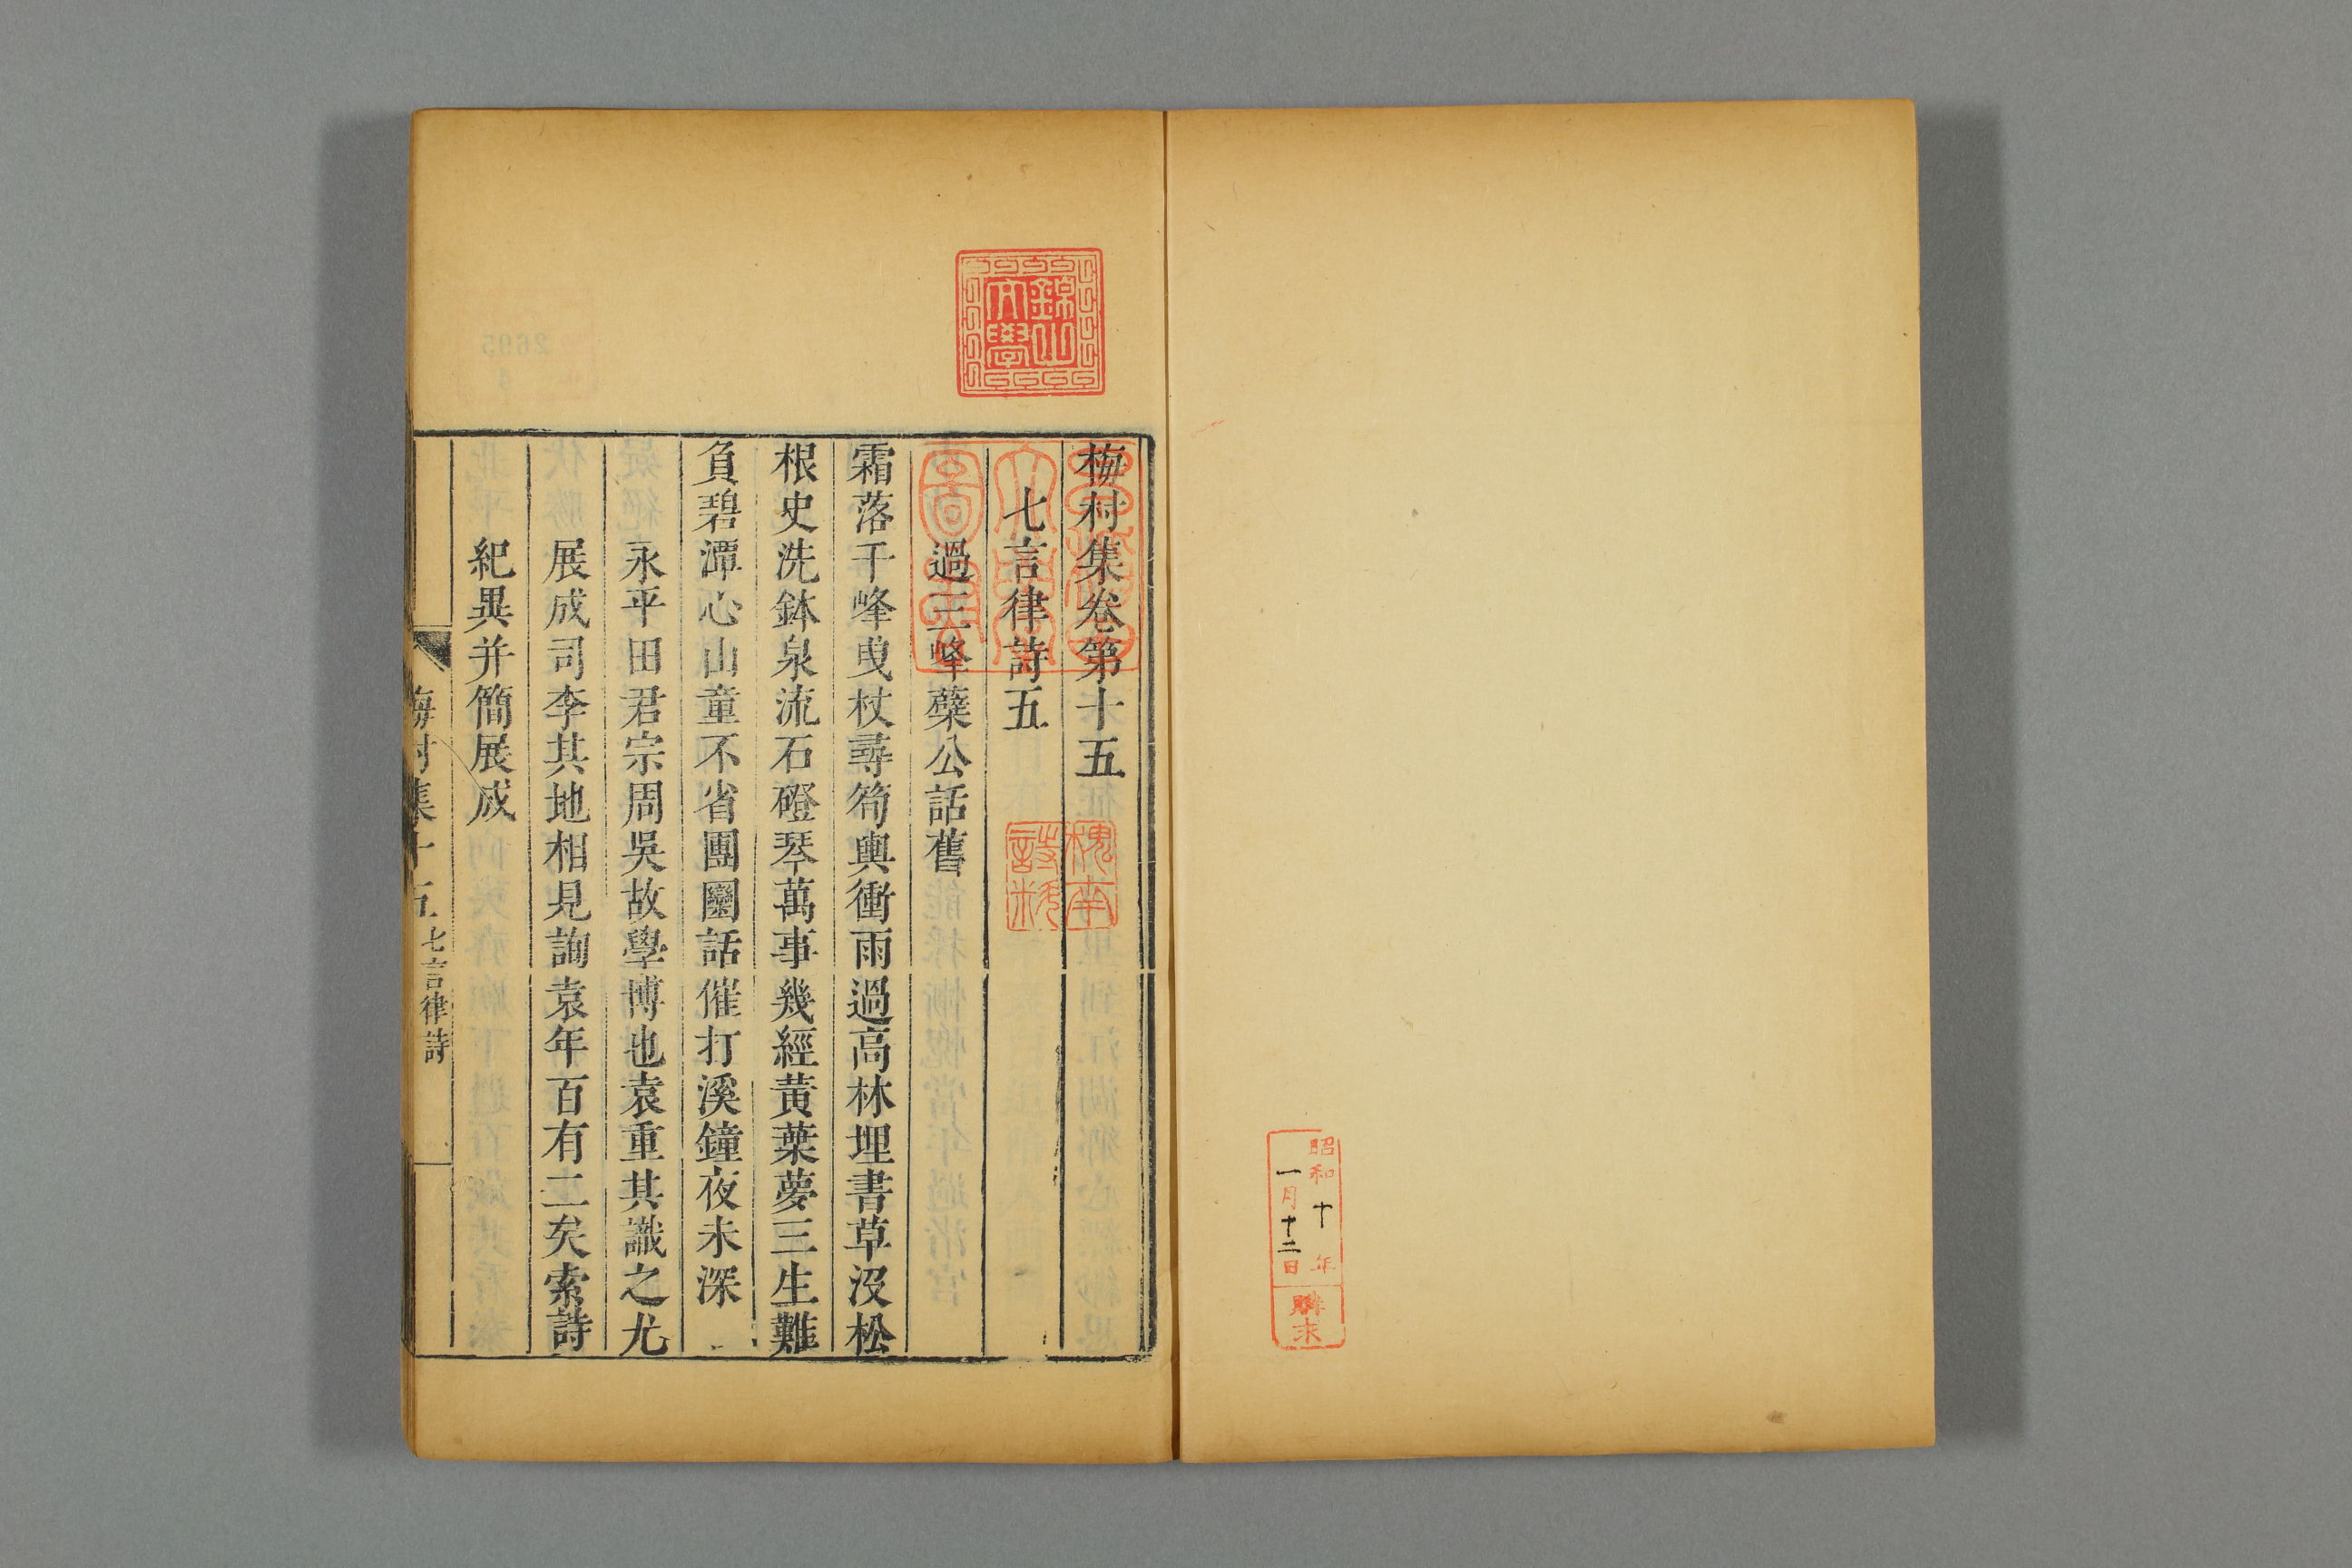 昭和十年
一月十二日
購求
錦山
文學
梅村集卷第十五
七言律詩五
過三峰蘗公話舊
霜落千峰曳杖尋筍輿衝雨過高林埋書草沒松
根史洗鉢泉流石磴琴萬事幾經黃葉夢三生難
負碧潭心山童不省團圞話催打溪鐘夜未深
永平田君宗周吳故學博也袁重其識之尤
展成司李其地相見詢袁年百有二矣索詩
紀異并簡展成
梅村集十五
七言律詩
槐南
詩料